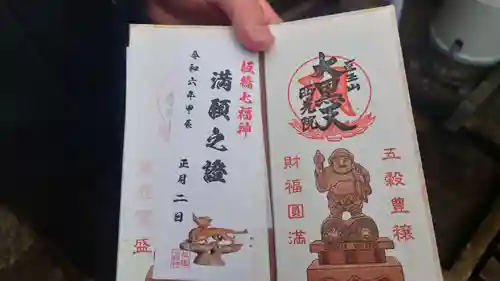 五穀豊穣
至玉山
大黒天
西光院
財福圓満
板橋七福神
満願之證
令和六年甲辰
正月二日